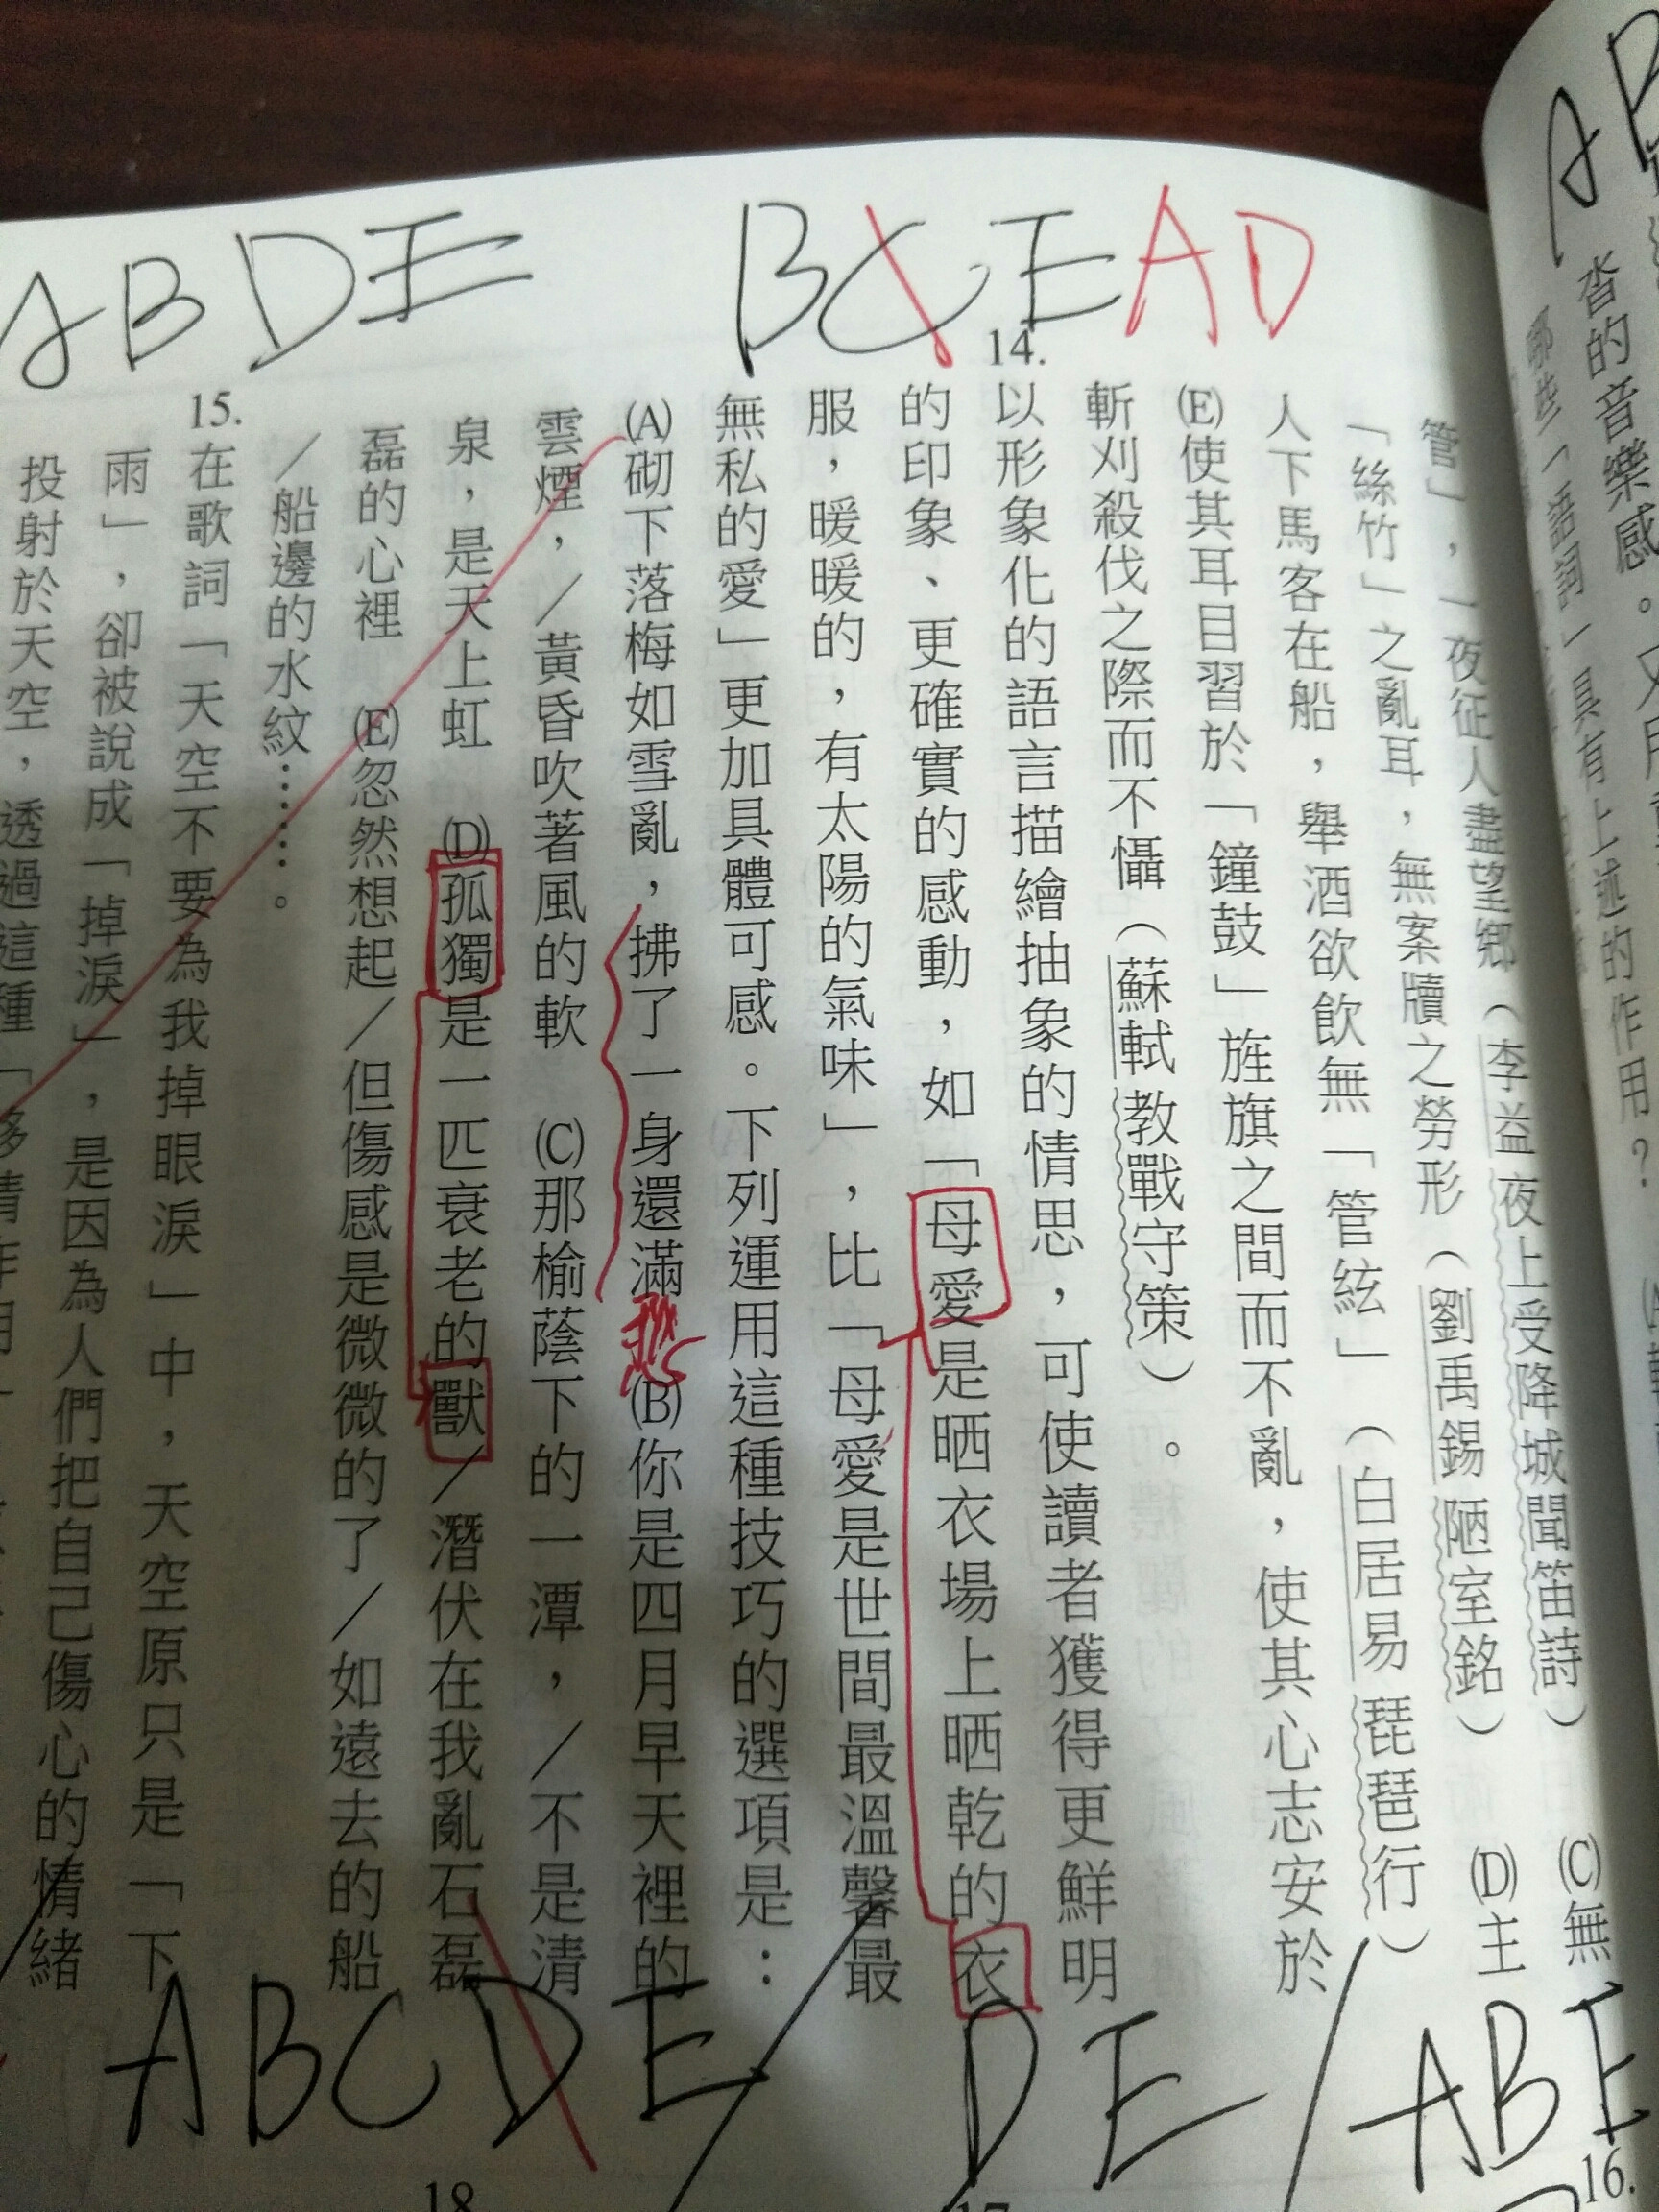 沓的音樂感。
哪些「語詞」具有上述的作用？
管」，一夜征人盡望鄉（李益 夜上受降城聞笛詩） (C)無
「絲竹」之亂耳，無案牘之勞形（劉禹錫 陋室銘） (D)主
人下馬客在船，舉酒欲飲無「管絃」（白居易 琵琶行）
(E)使其耳目習於「鐘鼓」旌旗之間而不亂，使其心志安於
斬刈殺伐之際而不懾（蘇軾 教戰守策）。
BCE AD
14.
以形象化的語言描繪抽象的情思，可使讀者獲得更鮮明
的印象、更確實的感動，如「母愛是晒衣場上晒乾的衣
服，暖暖的，有太陽的氣味」，比「母愛是世間最溫馨最
無私的愛」更加具體可感。下列運用這種技巧的選項是：
(A)砌下落梅如雪亂，拂了一身還滿 愁 (B)你是四月早天裡的
雲煙，／黃昏吹著風的軟 (C)那榆蔭下的一潭，／不是清
泉，是天上虹 (D)孤獨是一匹衰老的獸／潛伏在我亂石磊
磊的心裡 (E)忽然想起／但傷感是微微的了／如遠去的船
／船邊的水紋……。
ABDE
15.
在歌詞「天空不要為我掉眼淚」中，天空原只是「下
雨」，卻被說成「掉淚」，是因為人們把自己傷心的情緒
投射於天空，透過這種「
ABE
16.
DE
17
ABCDE
18